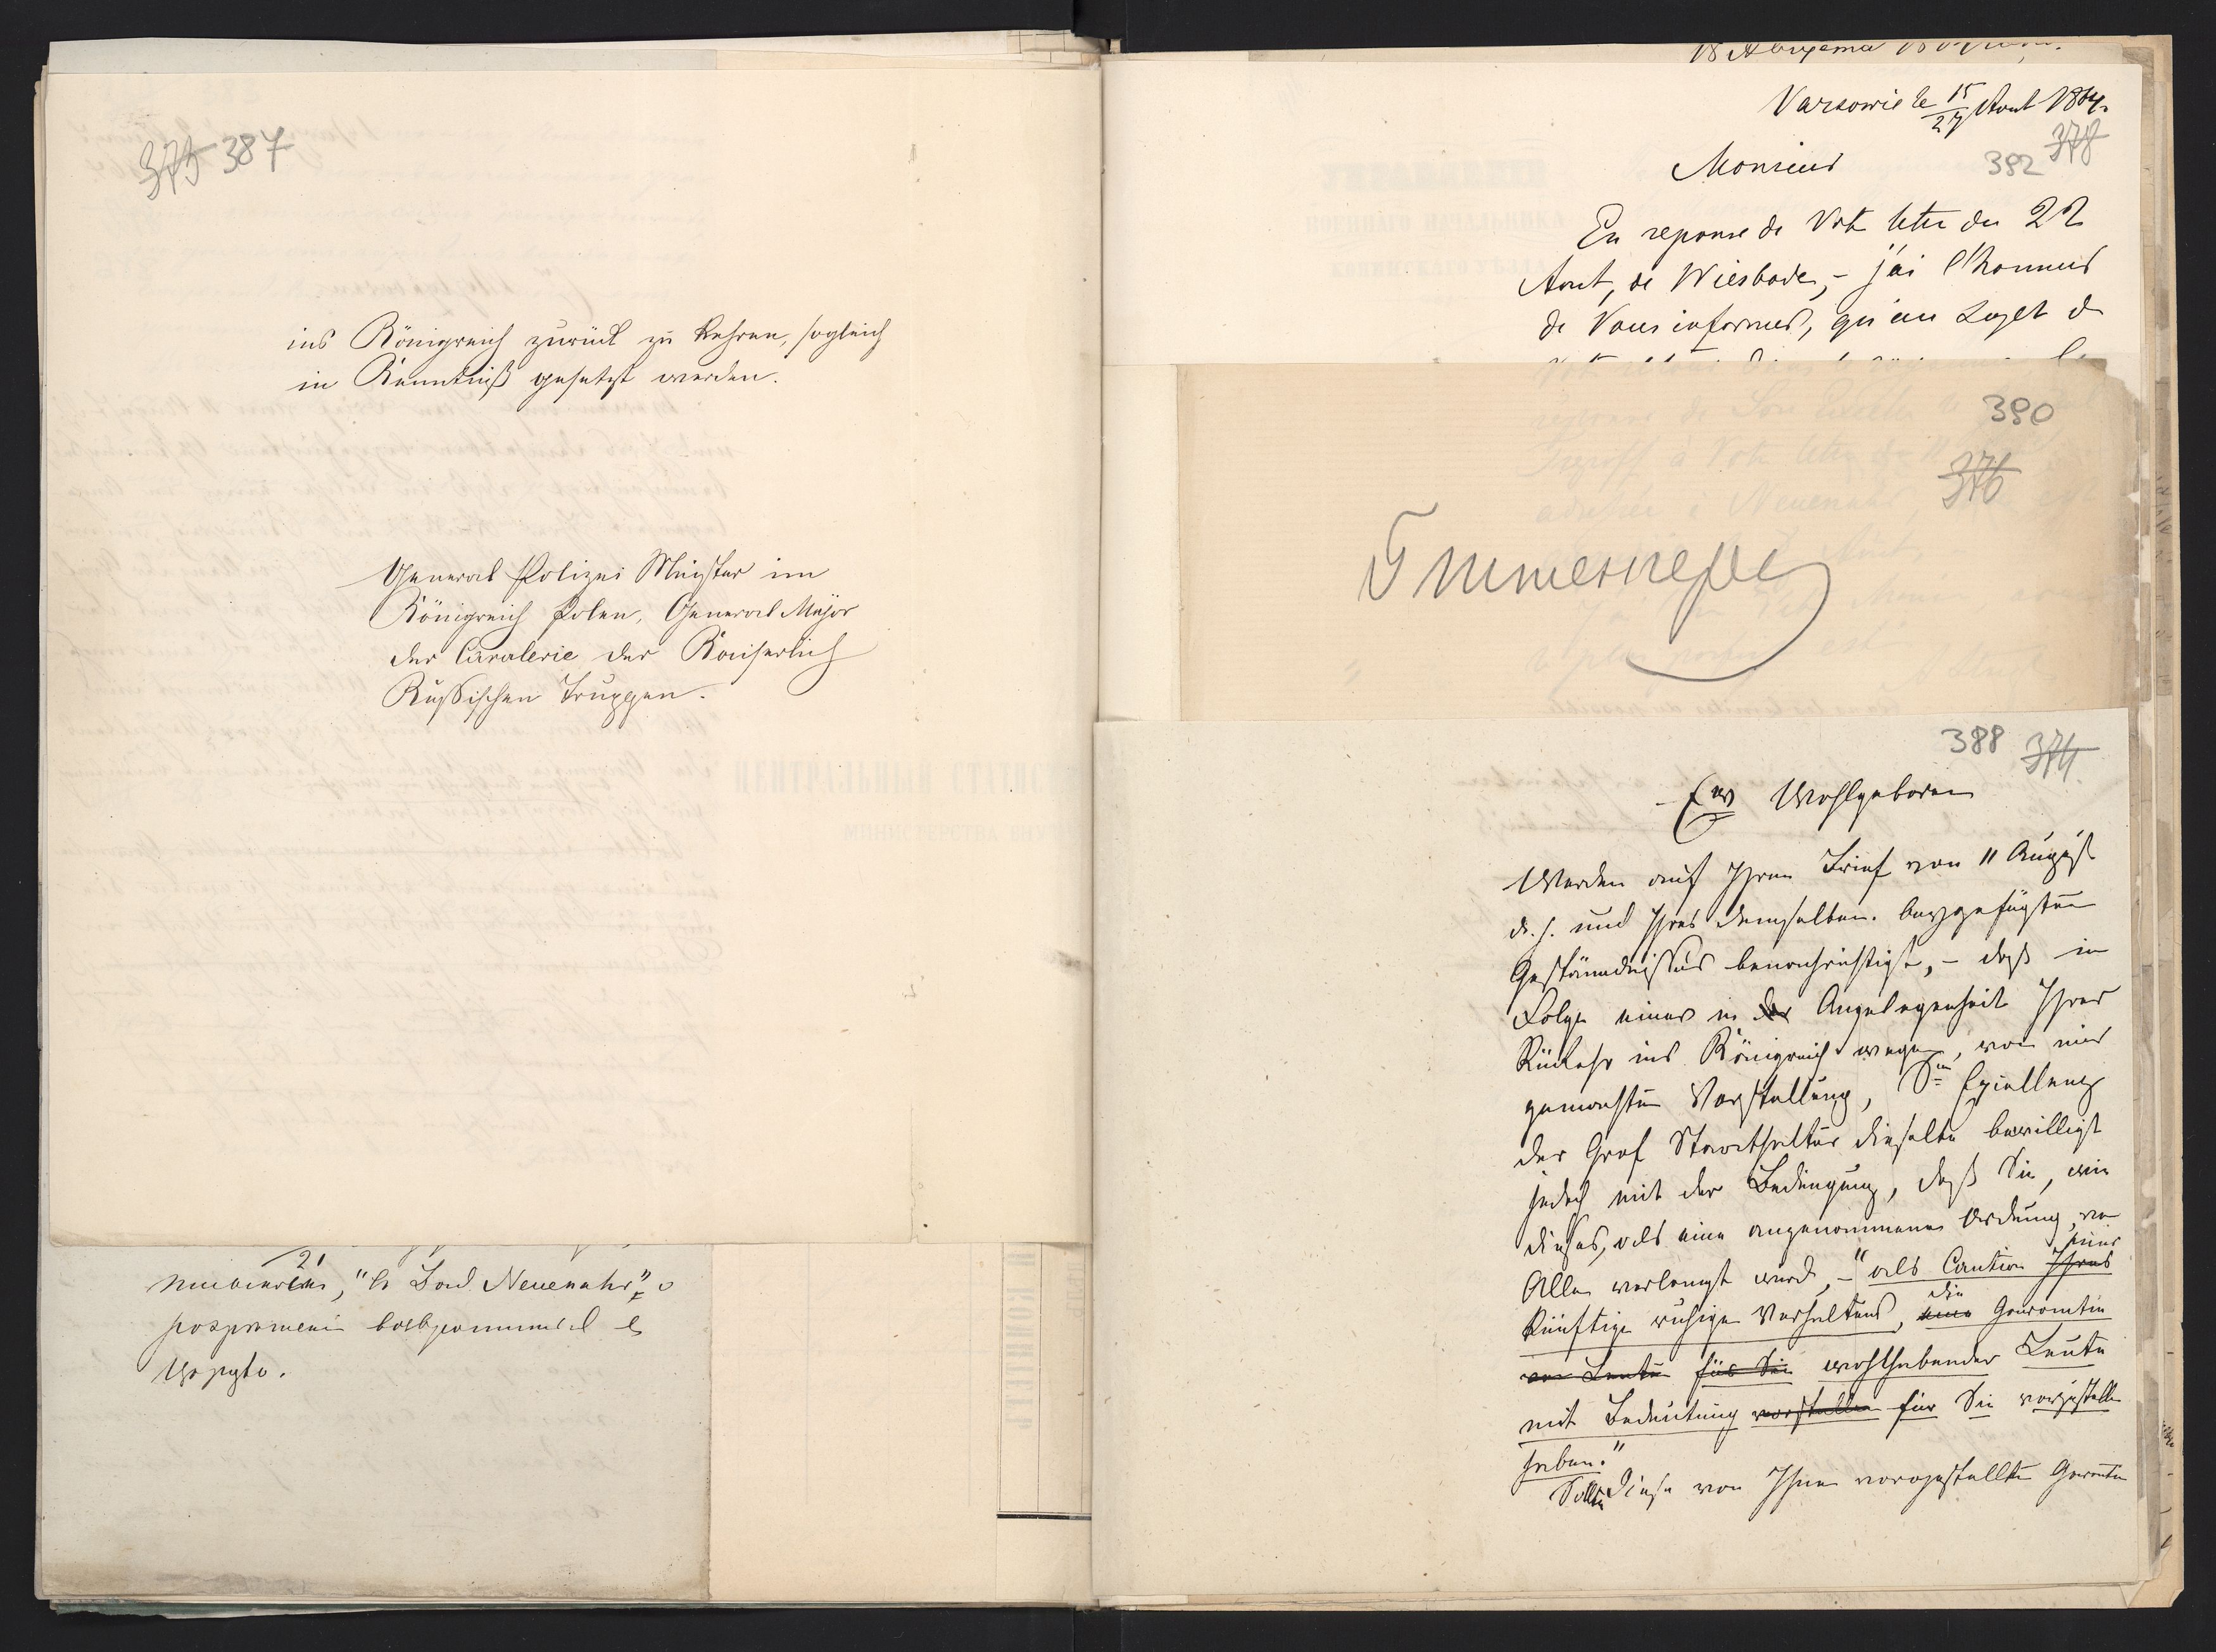 375 387
ins Königreich zurück zu kehren, sogleich
in Kenntniß gesetzt werden.
General Polizei Meister im
Königreich Polen, General Major
der Cavalerie der Kaiserlich
Russischen Truppen.
21
"въ Bad Neuenahr",
Varsovie le 15/27 Aout 1864.
378
392
Monsieur
En reponse de Votr lettre du 22
Aout, de Wiesbade, - j'ai l'honneur
de Vous informer, qu'au sujet d
390
376
388 374
Ew Wohlgeboren
Werden auf Ihren Brief von 11 August
d. J. und Ihres demselben beygefügten
Geständnisses benachrichtigt, - daß in
Folge einer in der Angelegenheit Ihrer
Rükehr ins Königreich wegen, von mir
gemachten Vorstellung, Sne Exzellenz
der Graf Statthalter dieselbe bewilligt
jedoch mit der Bedingung, daß Sie, wie
dieses, als eine angenommene Ordnung, von
Allen verlangt wird, - "als Caution Ihres seines
künftige ruhige Verhaltens, eine die Garantie
von Leuten für Sie wohlhabender Leute
mit Bedeutung vorstellen für Sie vorzustellen
haben."
Sollte diese von Ihnen vorgestellte Garantie